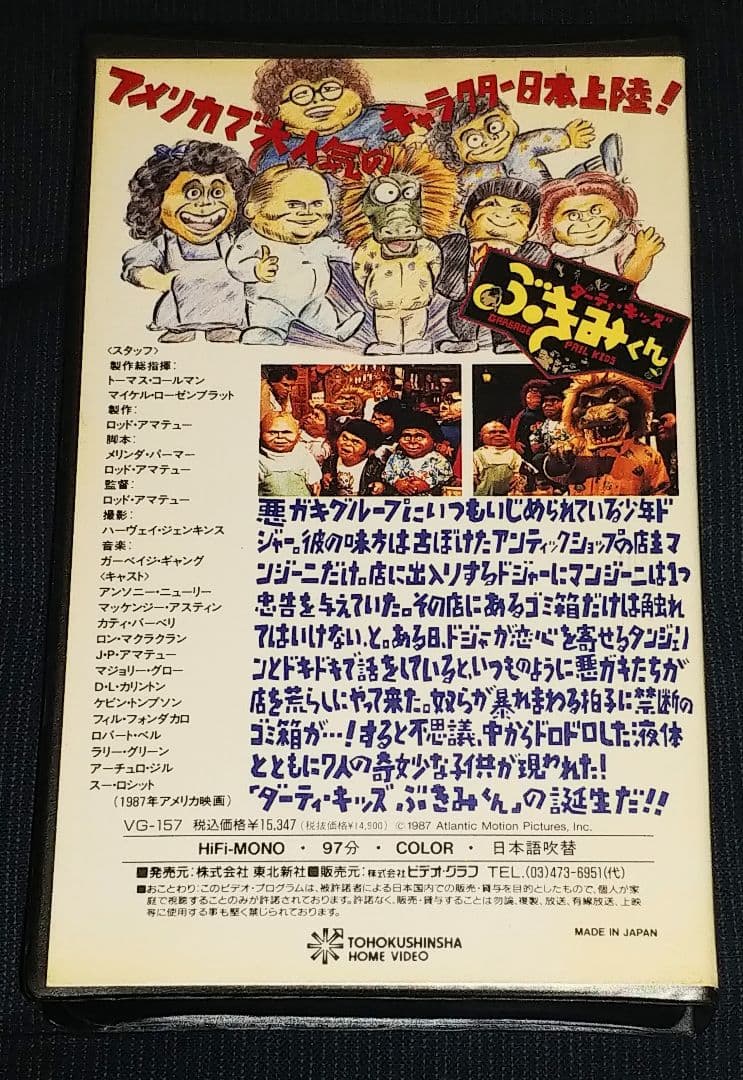 アメリカで大人気のキャラクター日本上陸！
ダーティ・キッズ
ぶきみくん
GARBAGE PAIL KIDS
〈スタッフ〉
製作総指揮：
トーマス・コールマン
マイケル・ローゼンブラット
製作：
ロッド・アマテュー
脚本：
メリンダ・パーマー
ロッド・アマテュー
監督：
ロッド・アマテュー
撮影：
ハーヴェイ・ジェンキンス
音楽：
ガーベイジ・ギャング
〈キャスト〉
アンソニー・ニューリー
マッケンジー・アスティン
カティ・バーベリ
ロン・マクラクラン
J・P・アマテュー
マジョリー・グロー
D・L・カリントン
ケビン・トンプソン
フィル・フォンダカロ
ロバート・ベル
ラリー・グリーン
アーチュロ・ジル
スー・ロシット
（1987年アメリカ映画）
悪ガキグループにいつもいじめられている少年ド
ジャー。彼の味方は古ぼけたアンティックショップの店主マ
ンジーニだけ。店に出入りするドジャーにマンジーニは1つ
忠告を与えていた。その店にあるゴミ箱だけは触れ
てはいけない、と。ある日、ドジャーが恋心を寄せるタンジェリ
ンとドキドキで話をしていると、いつものように悪ガキたちが
店を荒らしにやって来た。奴らが暴れまわる拍子に禁断の
ゴミ箱が…！すると不思議、中からドロドロした液体
とともに7人の奇妙な子供が現われた！
「ダーティ・キッズ ぶきみくん」の誕生だ!!
VG-157 税込価格¥15,347（税抜価格¥14,900） ©1987 Atlantic Motion Pictures, Inc.
HiFi-MONO ・ 97分 ・ COLOR ・ 日本語吹替
■発売元：株式会社 東北新社■販売元：株式会社 ビデオ・グラフ TEL.(03)473-6951(代)
■おことわり：このビデオ・プログラムは、被許諾者による日本国内での販売・貸与を目的としたもので、個人が家
庭で視聴することのみが許諾されております。許諾なく、販売・貸与することは勿論、複製、放送、有線放送、上映
等に使用する事も堅く禁じられております。
MADE IN JAPAN
TOHOKUSHINSHA
HOME VIDEO